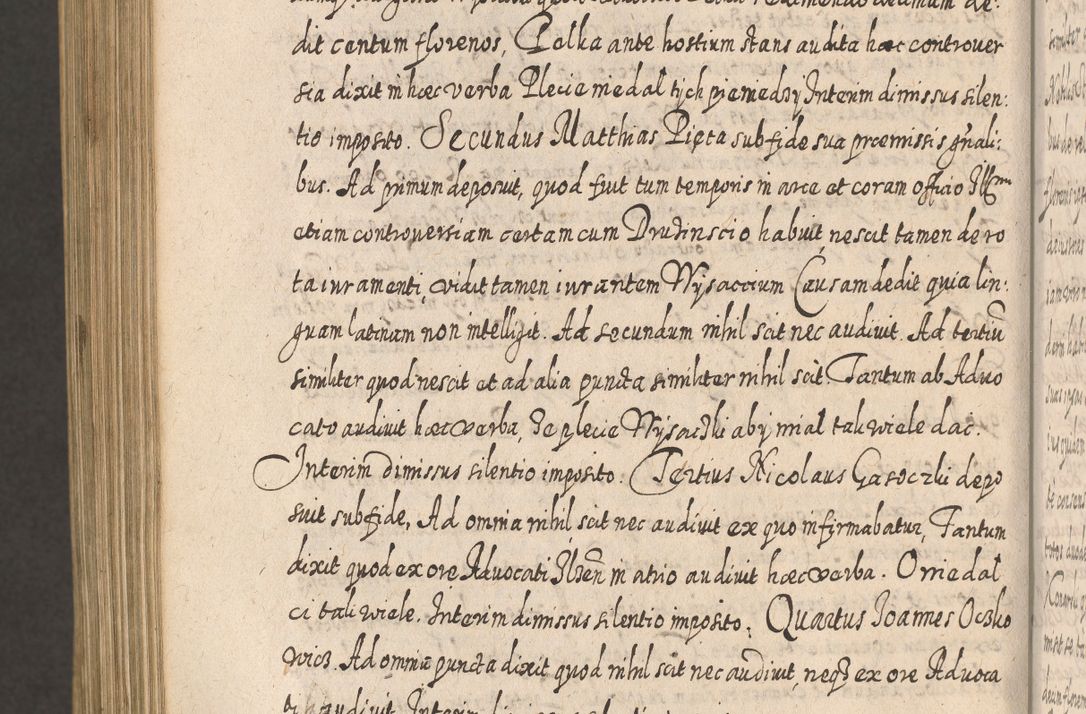 dit centum florenos, Palka ante hostium stans audita haec controver
sia dixit in haec verba Plecie niedal tych pieniedzy Interim dimissus silen:
tio imposito. Secundus Matthias Pięta sub fide sua praemissis gn̄ali:
bus. Ad primum deposuit, quod fuit tum temporis in arce et coram officio Illmi
etiam controversiam certam cum Druzinscio habuit nescit tamen de ro
ta iuramenti, vidit tamen iurantem Wysoccium Causam dedit quia lin:
guam latinam non intelligit. Ad secundum nihil scit nec audivit. Ad tertiū
similiter quod nescit et ad alia puncta similiter nihil scit. Tantum ab Advo
cato audivit haec verba, Ze plecie Wysoczki aby mial tak wiele dac.
Interim dimissus silentio imposito. Tertius Nicolaus Gasoczki depo
suit sub fide, Ad omnia nihil scit nec audivit ex quo infirmabatur, Tantum
dixit quod ex ore Advocati Ilzen̄ in atrio audivit haec verba. O niedal
ci tak wiele. Interim dimissus silentio imposito. Quartus Ioannes Oczko
wicz. Ad omnia puncta dixit quod nihil scit nec audivit, neqз ex ore Advoca
ti audivit Interim